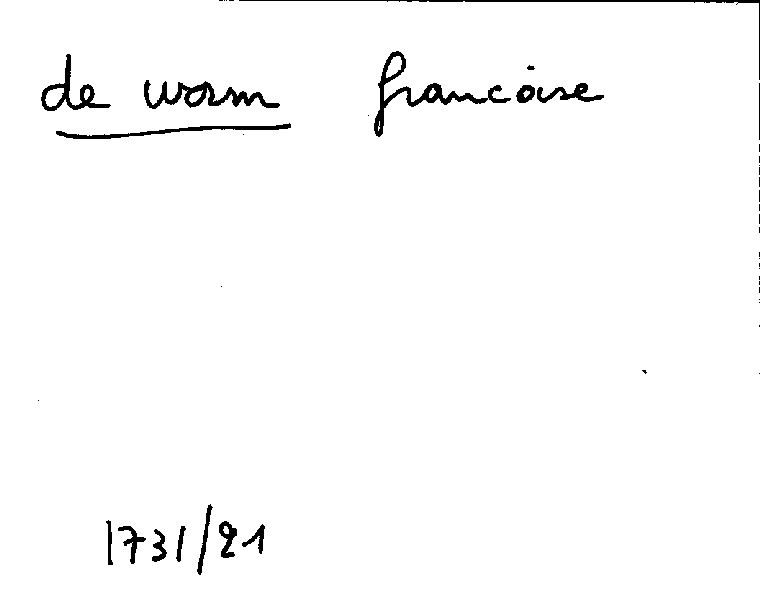 de worm francoise
1731/21